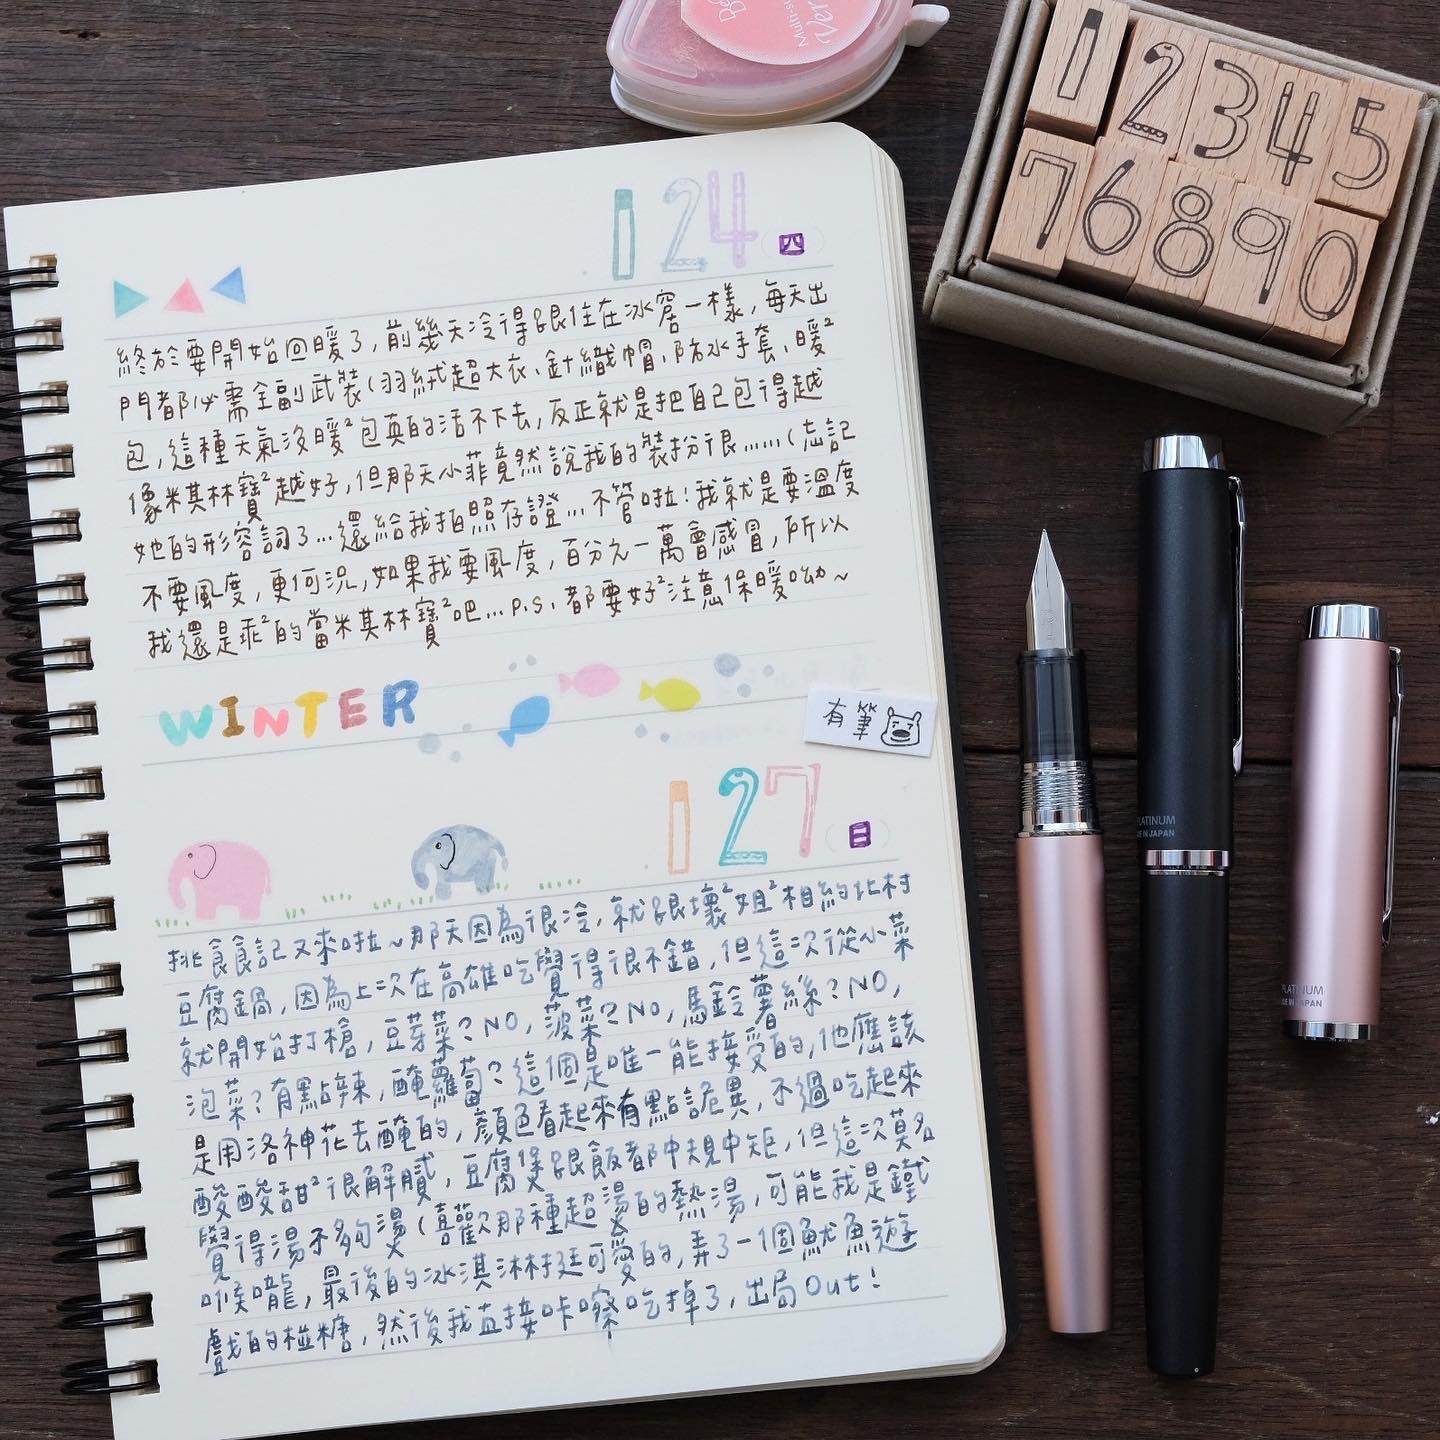 124 四
終於要開始回暖了,前幾天冷得跟住在冰窖一樣,每天出
門都必需全副武裝(羽絨超大衣、針織帽、防水手套、暖²
包,這種天氣沒暖²包真的活不下去,反正就是把自己包得越
像米其林寶²越好,但那天小菲竟然說我的裝扮很……(忘記
她的形容詞了…還給我拍照存證…不管啦!我就是要溫度
不要風度,更何況,如果我要風度,百分之一萬會感冒,所以
我還是乖²的當米其林寶²吧…P.S.都要好²注意保暖呦~
WINTER
有筆
127 日
挑食食記又來啦~那天因為很冷,就跟壞²姐²相約北村
豆腐鍋,因為上次在高雄吃覺得很不錯,但這次從小菜
就開始打槍,豆芽菜?NO,菠菜?NO,馬鈴薯絲?NO,
泡菜?有點辣,醃蘿蔔?這個是唯一能接受的,他應該
是用洛神花去醃的,顏色看起來有點詭異,不過吃起來
酸酸甜²很解膩,豆腐煲跟飯都中規中矩,但這次莫名
覺得湯不夠燙(喜歡那種超燙的熱湯,可能我是鐵
喉嚨,最後的冰淇淋挺可愛的,弄了一個魷魚遊
戲的椪糖,然後我直接咔嚓吃掉了,出局Out!
1 2 3 4 5
7 6 8 9 0
PLATINUM
MADE IN JAPAN
PLATINUM
MADE IN JAPAN